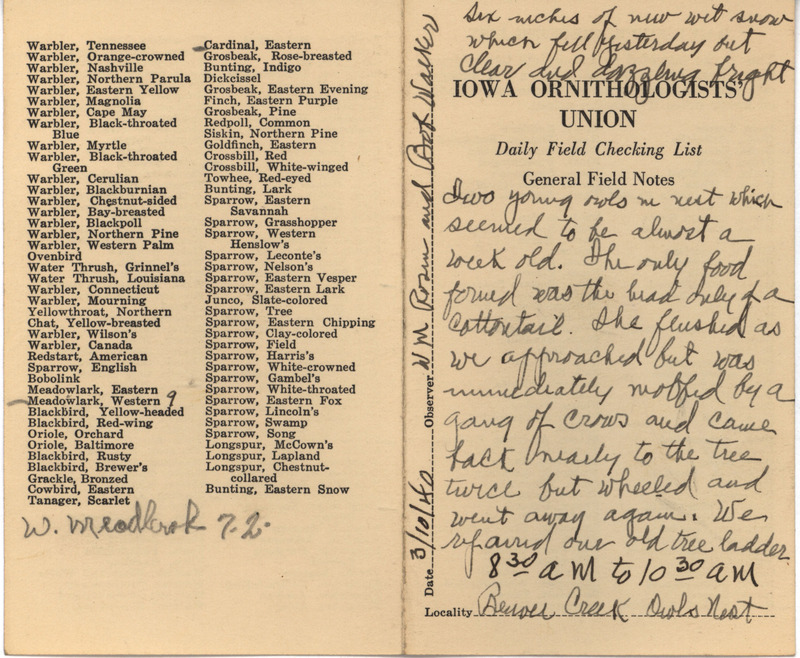 Warbler, Tennessee
Warbler, Orange-crowned
Warbler, Nashville
Warbler, Northern Parula
Warbler, Eastern Yellow
Warbler, Magnolia
Warbler, Cape May
Warbler, Black-throated
Blue
Warbler, Myrtle
Warbler, Black-throated
Green
Warbler, Cerulian
Warbler, Blackburnian
Warbler, Chestnut-sided
Warbler, Bay-breasted
Warbler, Blackpoll
Warbler, Northern Pine
Warbler, Western Palm
Ovenbird
Water Thrush, Grinnel's
Water Thrush, Louisiana
Warbler, Connecticut
Warbler, Mourning
Yellowthroat, Northern
Chat, Yellow-breasted
Warbler, Wilson's
Warbler, Canada
Redstart, American
Sparrow, English
Bobolink
Meadowlark, Eastern
Meadowlark, Western 9
Blackbird, Yellow-headed
Blackbird, Red-wing
Oriole, Orchard
Oriole, Baltimore
Blackbird, Rusty
Blackbird, Brewer's
Grackle, Bronzed
Cowbird, Eastern
Tanager, Scarlet
W. Meadlark 7-2-
Cardinal, Eastern
Grosbeak, Rose-breasted
Bunting, Indigo
Dickcissel
Grosbeak, Eastern Evening
Finch, Eastern Purple
Grosbeak, Pine
Redpoll, Common
Siskin, Northern Pine
Goldfinch, Eastern
Crossbill, Red
Crossbill, White-winged
Towhee, Red-eyed
Bunting, Lark
Sparrow, Eastern
Savannah
Sparrow, Grasshopper
Sparrow, Western
Henslow's
Sparrow, Leconte's
Sparrow, Nelson's
Sparrow, Eastern Vesper
Sparrow, Eastern Lark
Junco, Slate-colored
Sparrow, Tree
Sparrow, Eastern Chipping
Sparrow, Clay-colored
Sparrow, Field
Sparrow, Harris's
Sparrow, White-crowned
Sparrow, Gambel's
Sparrow, White-throated
Sparrow, Eastern Fox
Sparrow, Lincoln's
Sparrow, Swamp
Sparrow, Song
Longspur, McCown's
Longspur, Lapland
Longspur, Chestnut-
collared
Bunting, Eastern Snow
Date 3/10/40 Observer W M Rosen and Bob Walker
Six inches of new wet snow
which fell yesterday but
clear and dazzling bright
IOWA ORNITHOLOGISTS'
UNION
Daily Field Checking List
General Field Notes
Two young owls in nest which
seemed to be almost a
week old. The only food
found was the head only of a
cottontail. She flushed as
we approached but was
immediately mobbed by a
gang of crows and came
back nearly to the tree
twice but wheeled and
went away again. We
repaired our old tree ladder
8 30 a M to 10 30 a M
Locality Beaver Creek Owls Nest